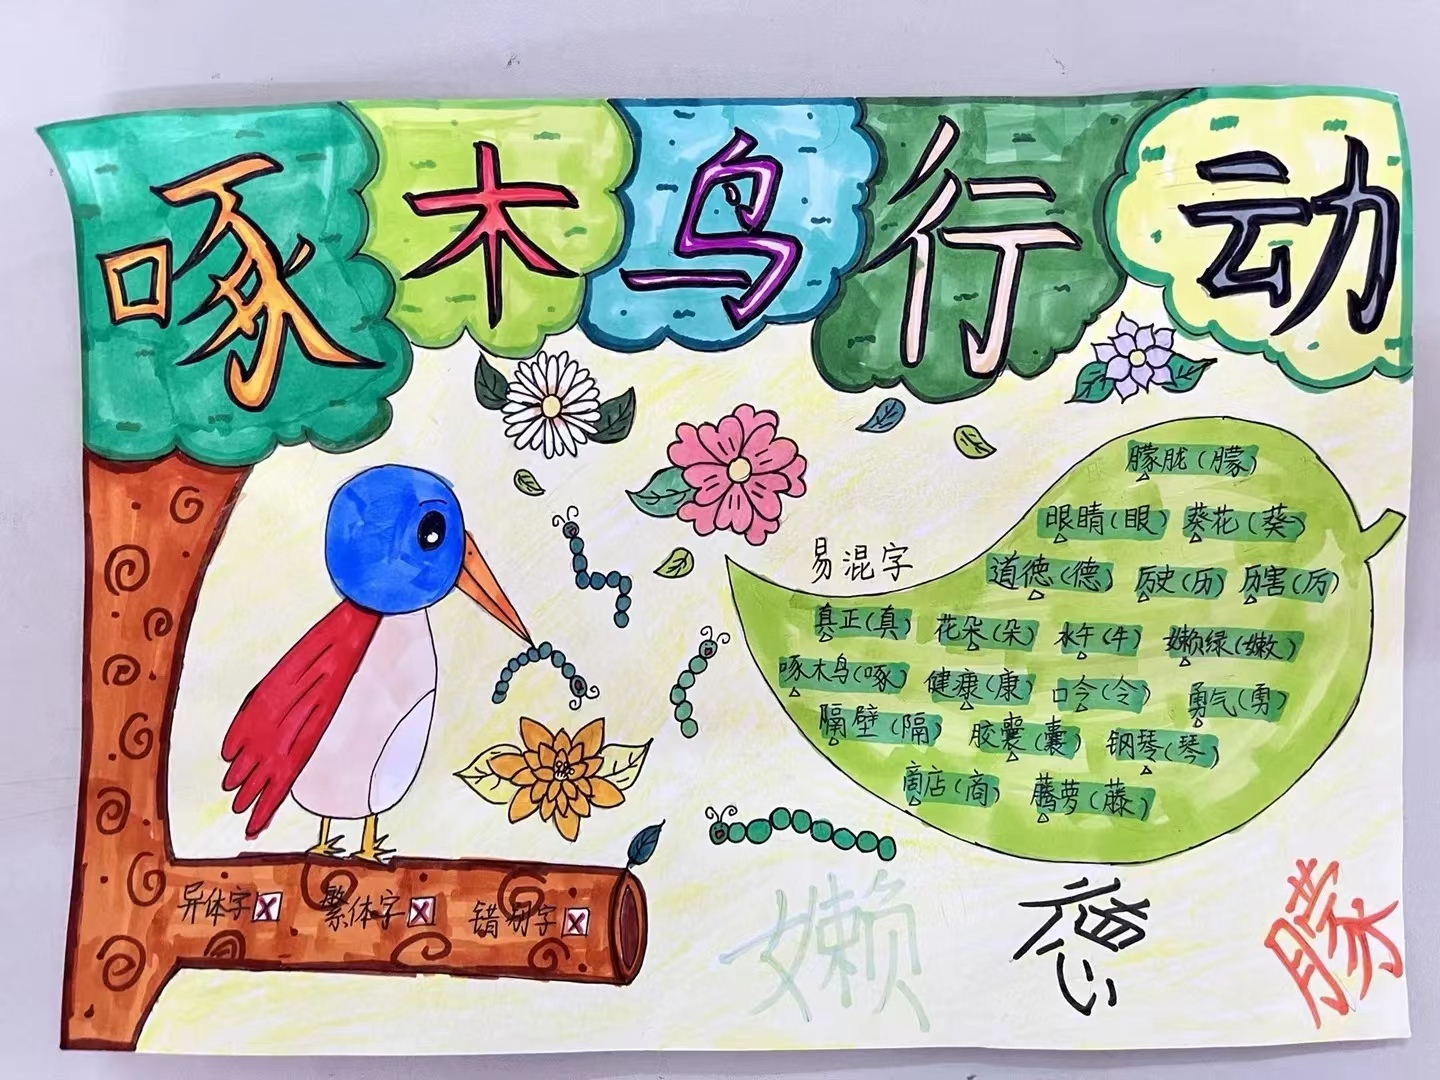 啄木鸟行动
易混字
朦胧(朦)
眼睛(眼) 葵花(葵)
道德(德) 历史(历) 厉害(厉)
真正(真) 花朵(朵) 水牛(牛) 嫩绿(嫩)
啄木鸟(啄) 健康(康) 口令(令) 勇气(勇)
隔壁(隔) 胶囊(囊) 钢琴(琴)
商店(商) 藤萝(藤)
异体字 繁体字 错别字